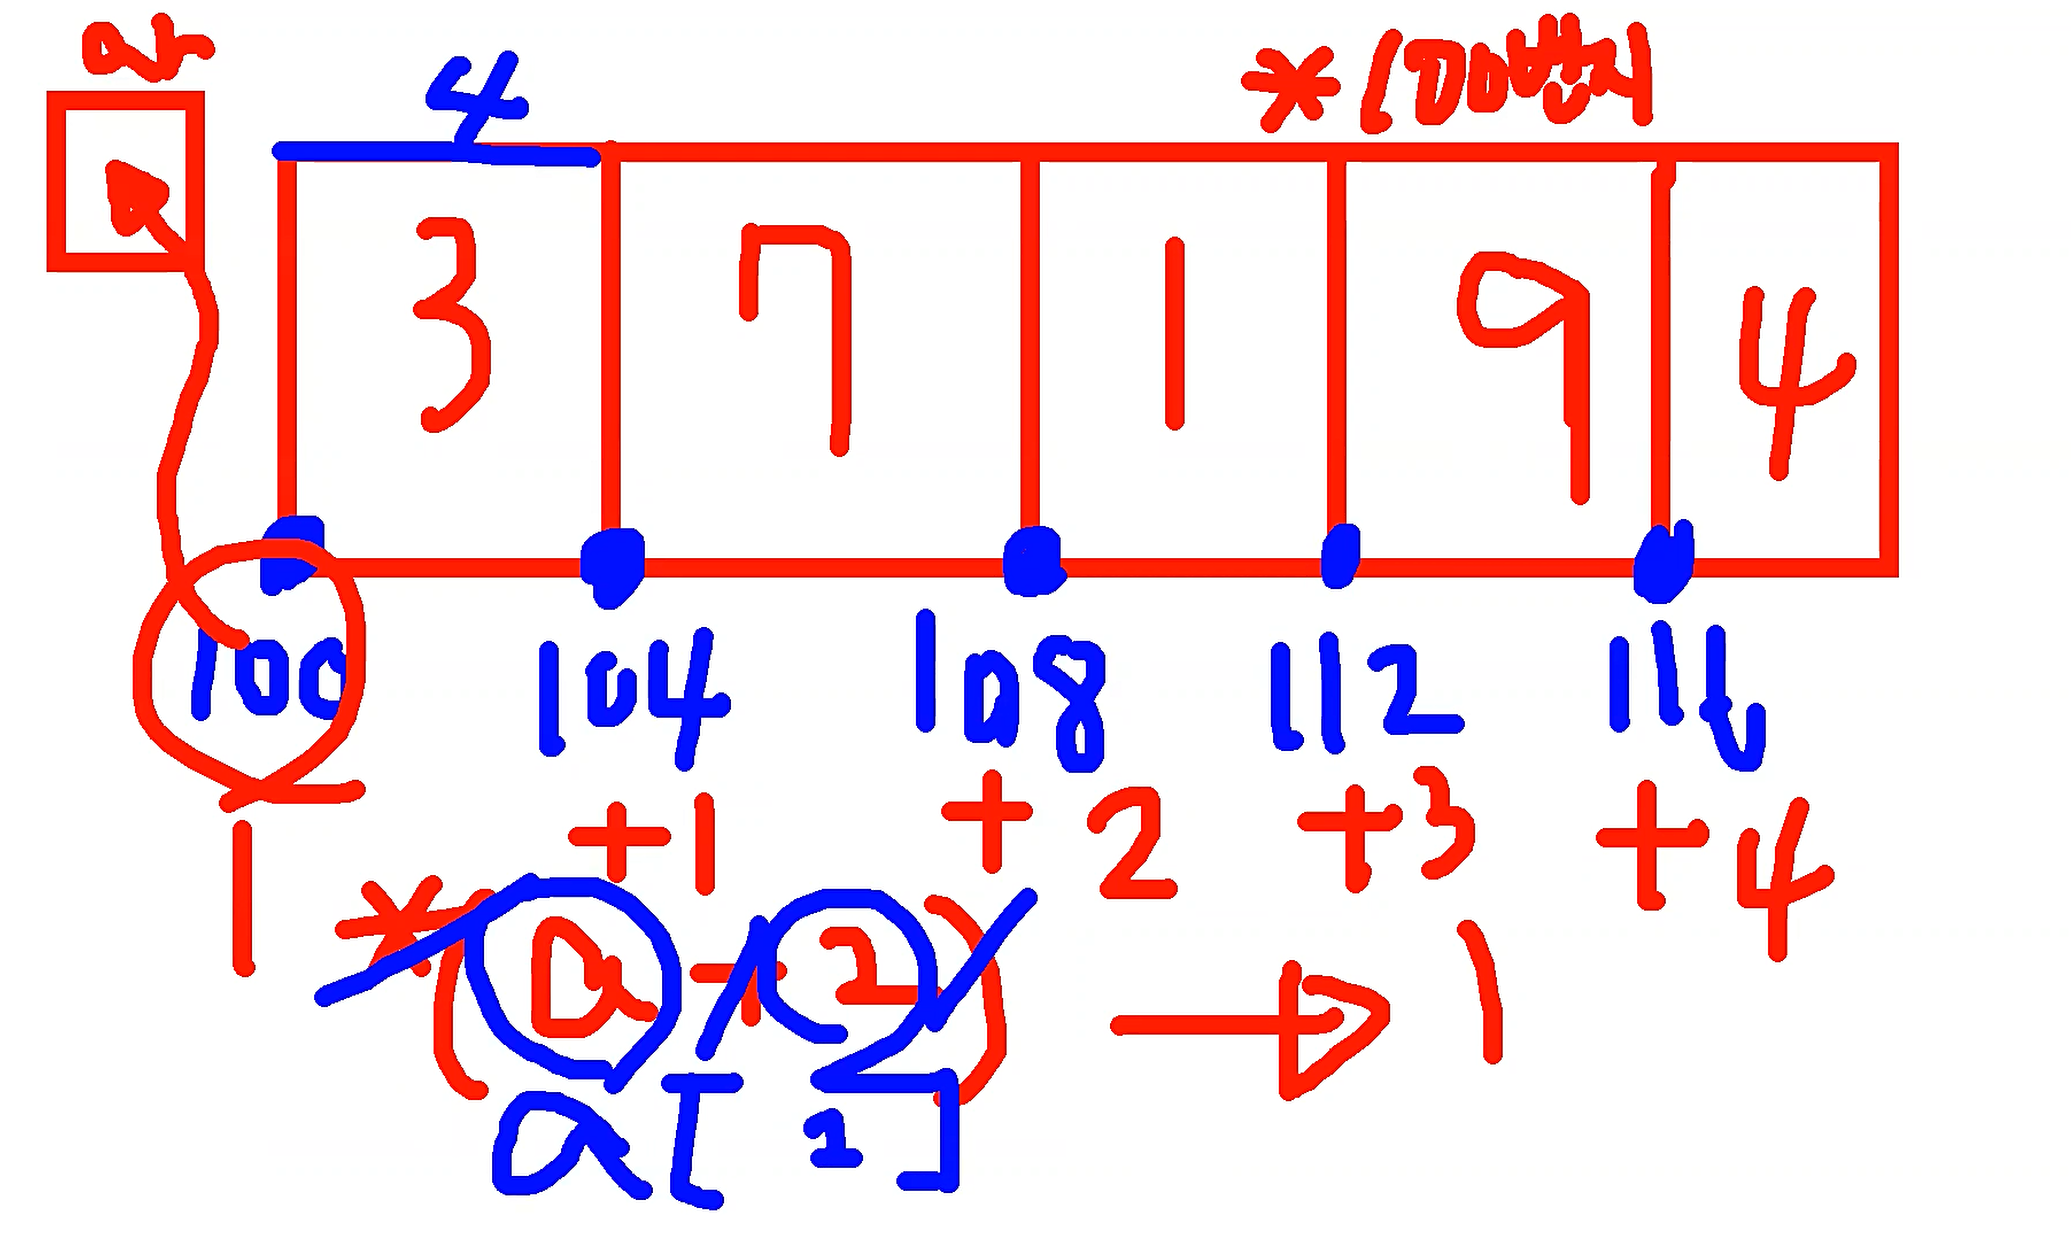 a 4 *100번지
3 7 1 9 4
100 104 108 112 116
+1 +2 +3 +4
*(a+2) → 1
a[2]